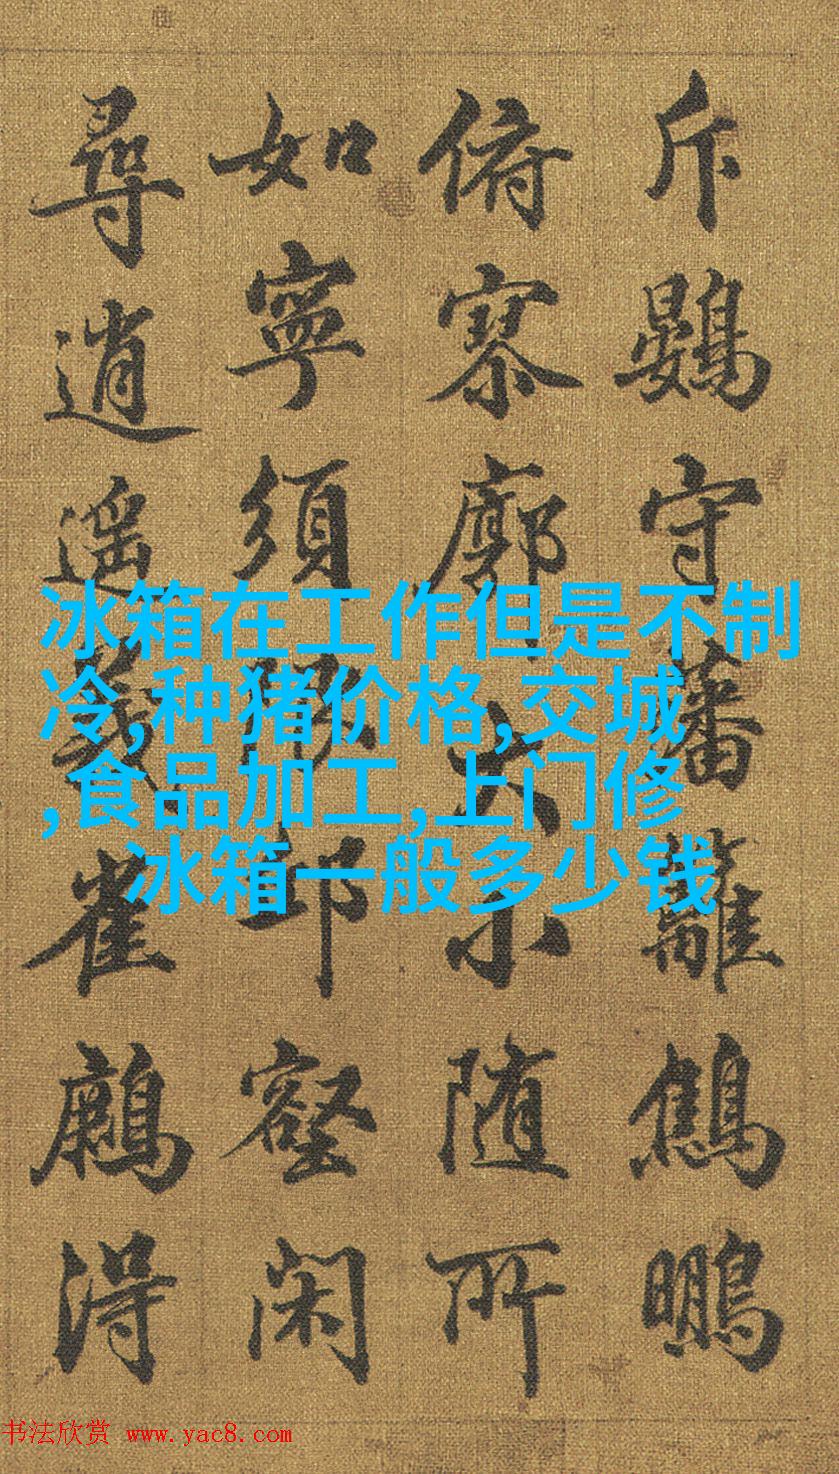 斥鷃守蕃籬鷦鵬
俯寥廓大小随所
如寧須限邱壑闲
尋逍遥義雀得
冰箱在工作但是不制
冷,种猪价格,交城
,食品加工,上门修
冰箱一般多少钱
书法欣赏 www.yac8.com